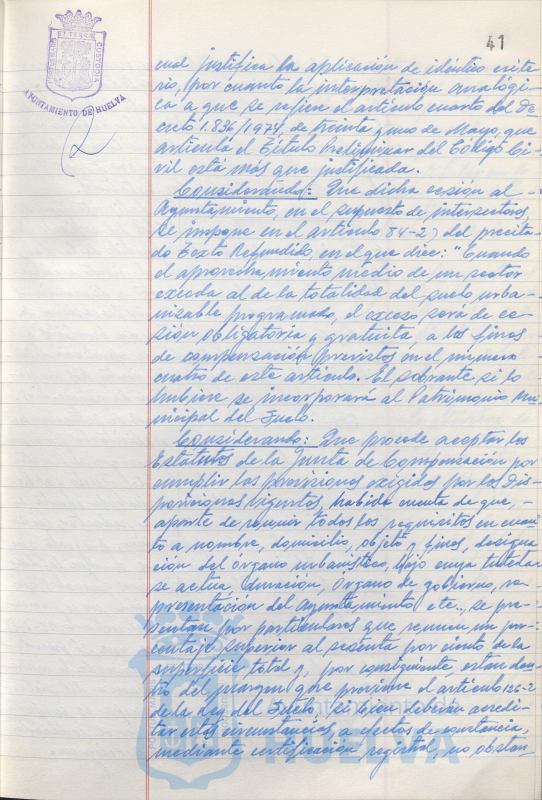 41
AYUNTAMIENTO DE HUELVA
cual justifica la aplicación de idéntico crite-
rio, por cuanto la interpretación analógi-
ca a que se refiere el artículo cuarto del De-
creto 1.836/1974, de treinta y uno de Mayo, que
articula el Título Preliminar del Código Ci-
vil está más que justificada.
Considerando: Que dicha cesión al -
Ayuntamiento, en el supuesto de intersectores,
se impone en el artículo 84-2) del precita-
do Texto Refundido, en el que dice: "Cuando
el aprovechamiento medio de un sector
exceda al de la totalidad del suelo urba-
nizable programado, el exceso será de ce-
sión obligatoria y gratuita, a los fines
de compensación previstos en el número
cuatro de este artículo. El sobrante si lo
hubiere se incorporará al Patrimonio Mu-
nicipal del Suelo.
Considerando: Que procede aceptar los
Estatutos de la Junta de Compensación por
cumplir las previsiones exigidas por las Dis-
posiciones Vigentes, habida cuenta de que, -
aparte de reunir todos los requisitos en cuan-
to a nombre, domicilio, objeto y fines, designa-
ción del órgano urbanístico, bajo cuya tutela
se actua, duración, órgano de gobierno, re-
presentación del Ayuntamiento etc., se pre-
sentan por particulares que reunen un por-
centaje superior al sesenta por ciento de la
superficie total y, por consiguiente, están den-
tro del margen que previene el artículo 126-2
de la Ley del Suelo, si bien deberán acredi-
tar estas circunstancias, a efectos de constancia,
mediante certificación registral, no obstan-
Ayuntamiento de
HUELVA